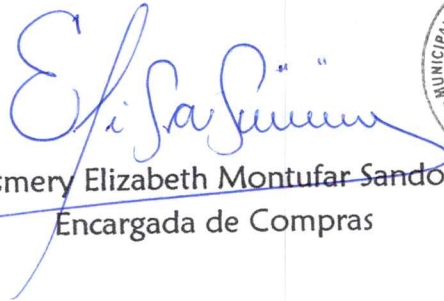 MUNICIPAL
smery Elizabeth Montufar Sando
Encargada de Compras